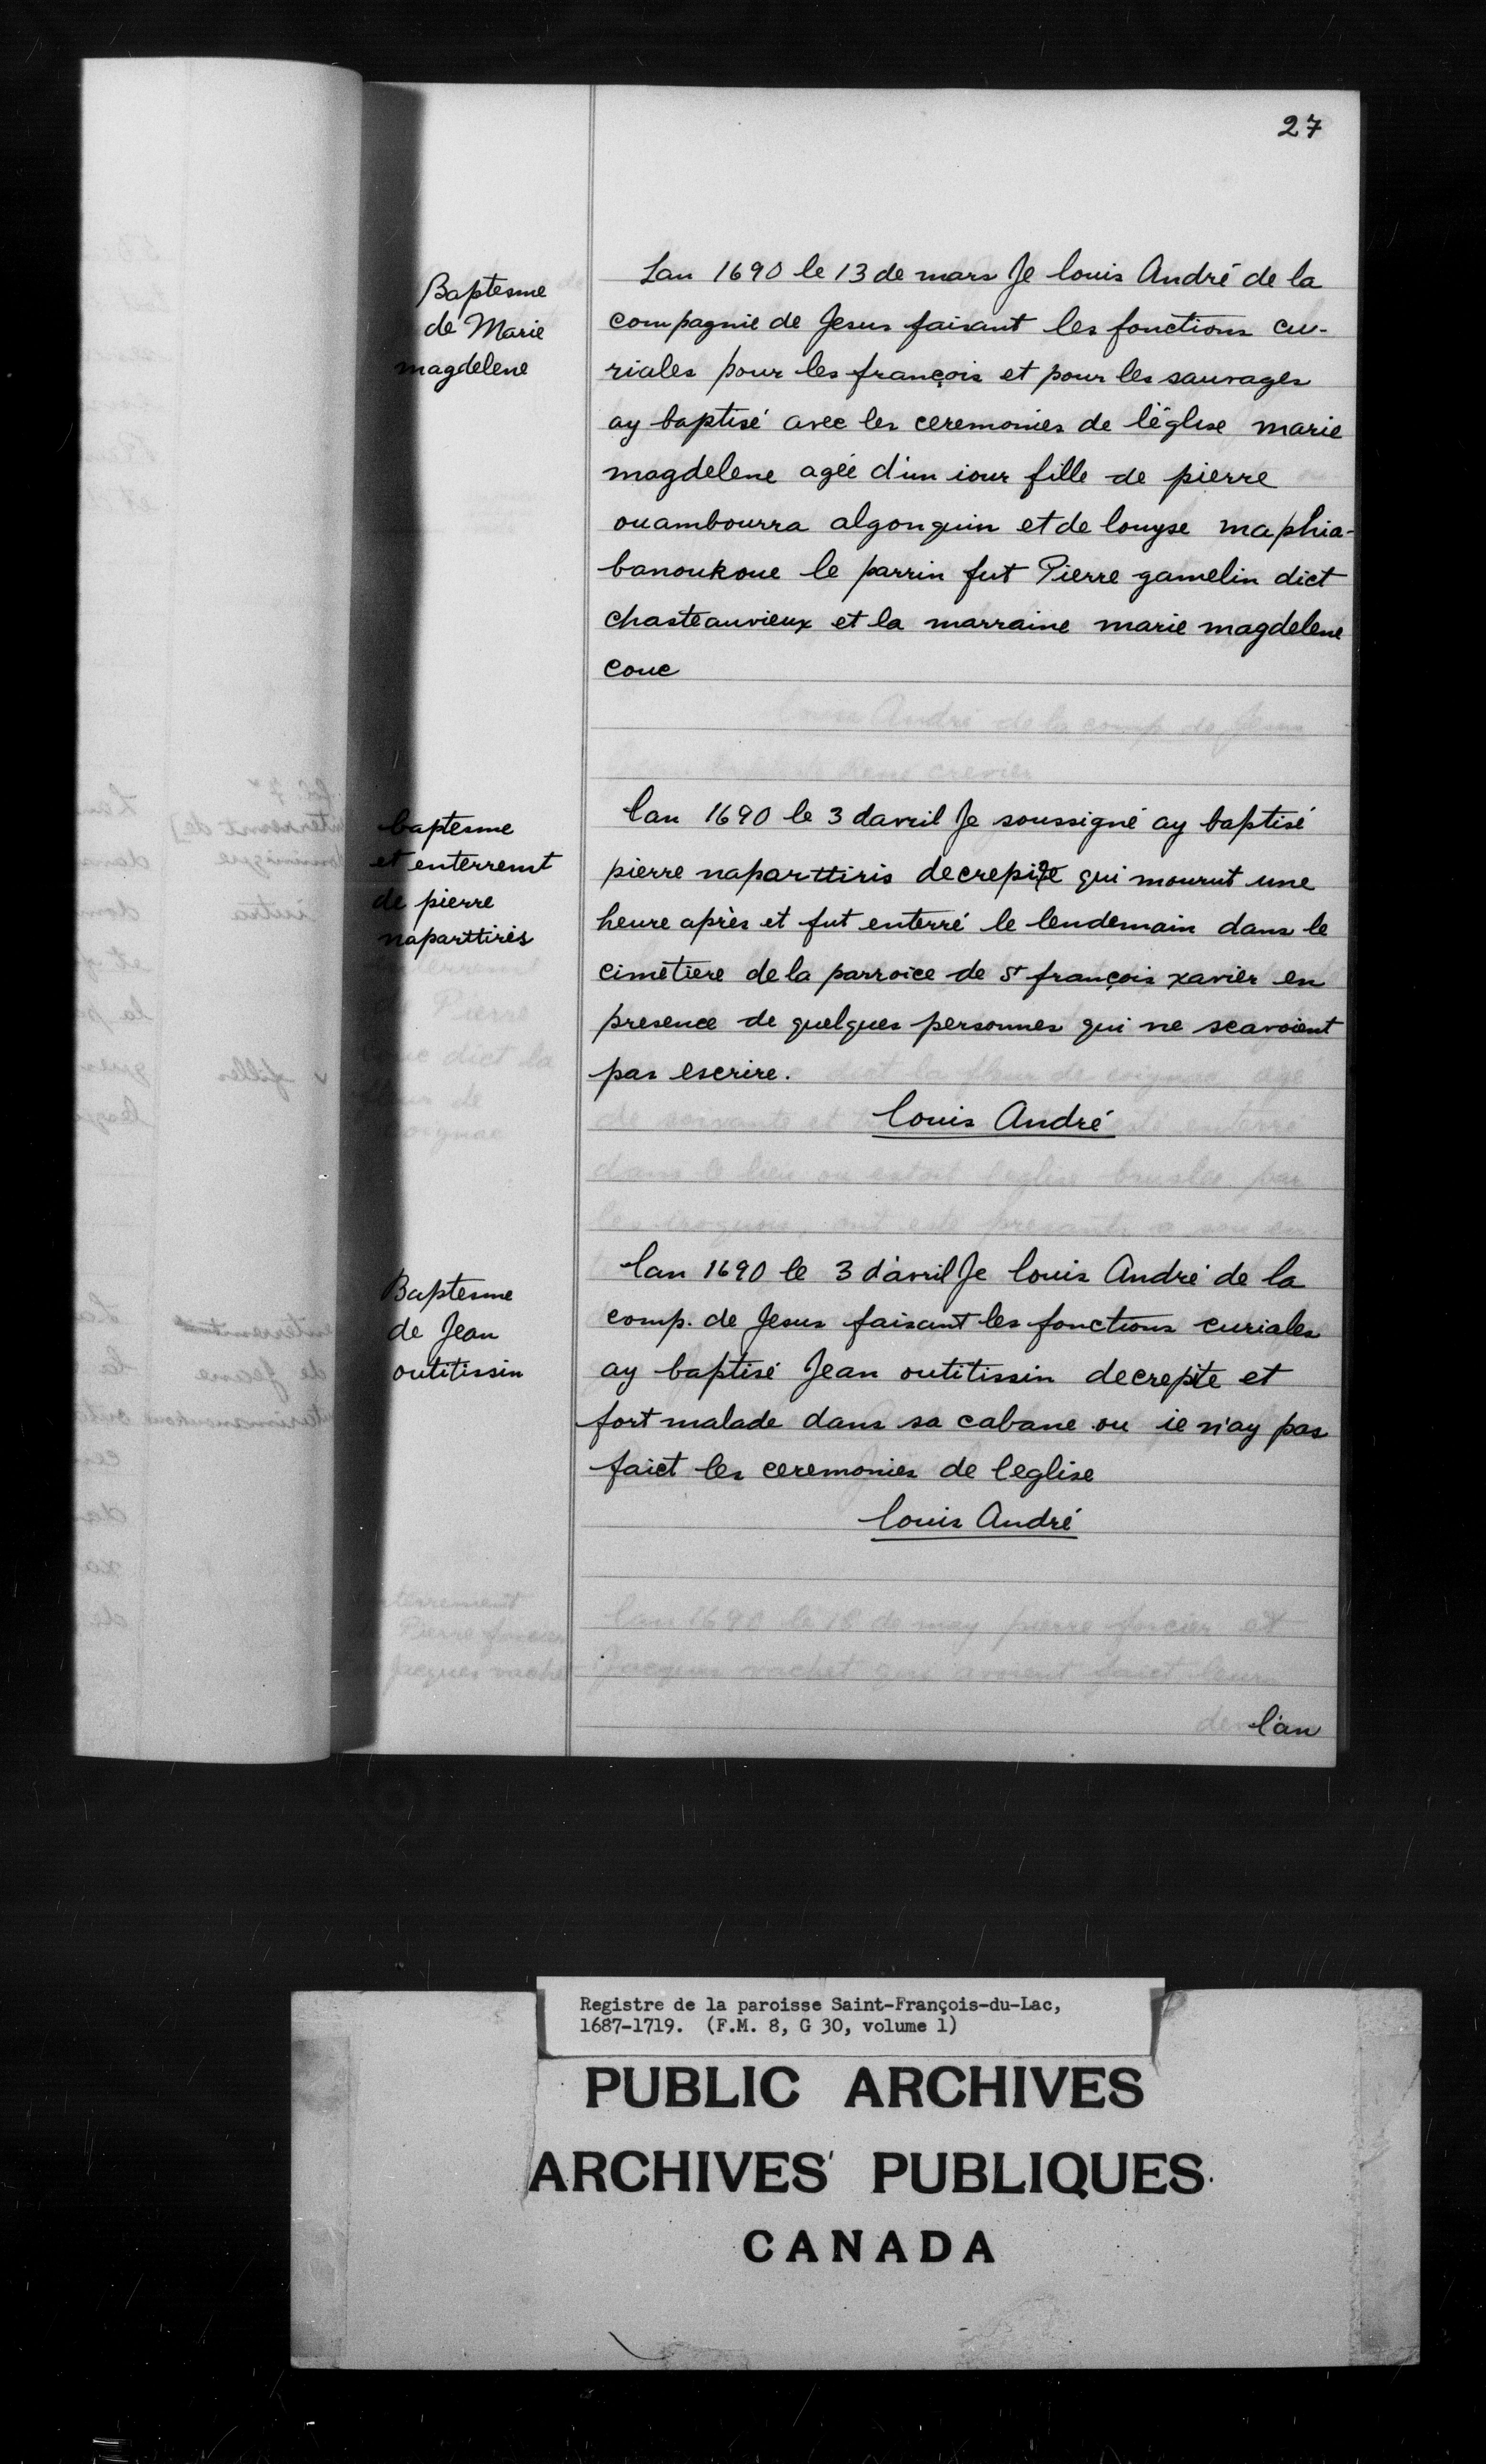 27
Baptesme
de Marie
magdelene
Lan 1690 le 13 de mars Je louis André de la
compagnie de Jesus faisant les fonctions cu-
riales pour les françois et pour les sauvages
ay baptisé avec les ceremonies de l'église marie
magdelene agée d'un iour fille de pierre
ouambourra algonquin et de louyse maphia-
banoukoue le parrin fut Pierre gamelin dict
chasteauvieux et la marraine marie magdelene
coue
baptesme
et enterremt
de pierre
naparttiris
lan 1690 le 3 davril Je soussigné ay baptisé
pierre naparttiris decrepite qui mourut une
heure après et fut enterré le lendemain dans le
cimetiere de la parroice de St françois xavier en
presence de quelques personnes qui ne scavoient
pas escrire.
louis André
Baptesme
de Jean
outitissin
lan 1690 le 3 d'avril Je louis André de la
comp. de Jesus faisant les fonctions curiales
ay baptisé Jean outitissin decrepite et
fort malade dans sa cabane ou ie n'ay pas
faict les ceremonies de leglise
louis André
l'an
Registre de la paroisse Saint-François-du-Lac,
1687-1719. (F.M. 8, G 30, volume 1)
PUBLIC ARCHIVES
ARCHIVES PUBLIQUES
CANADA